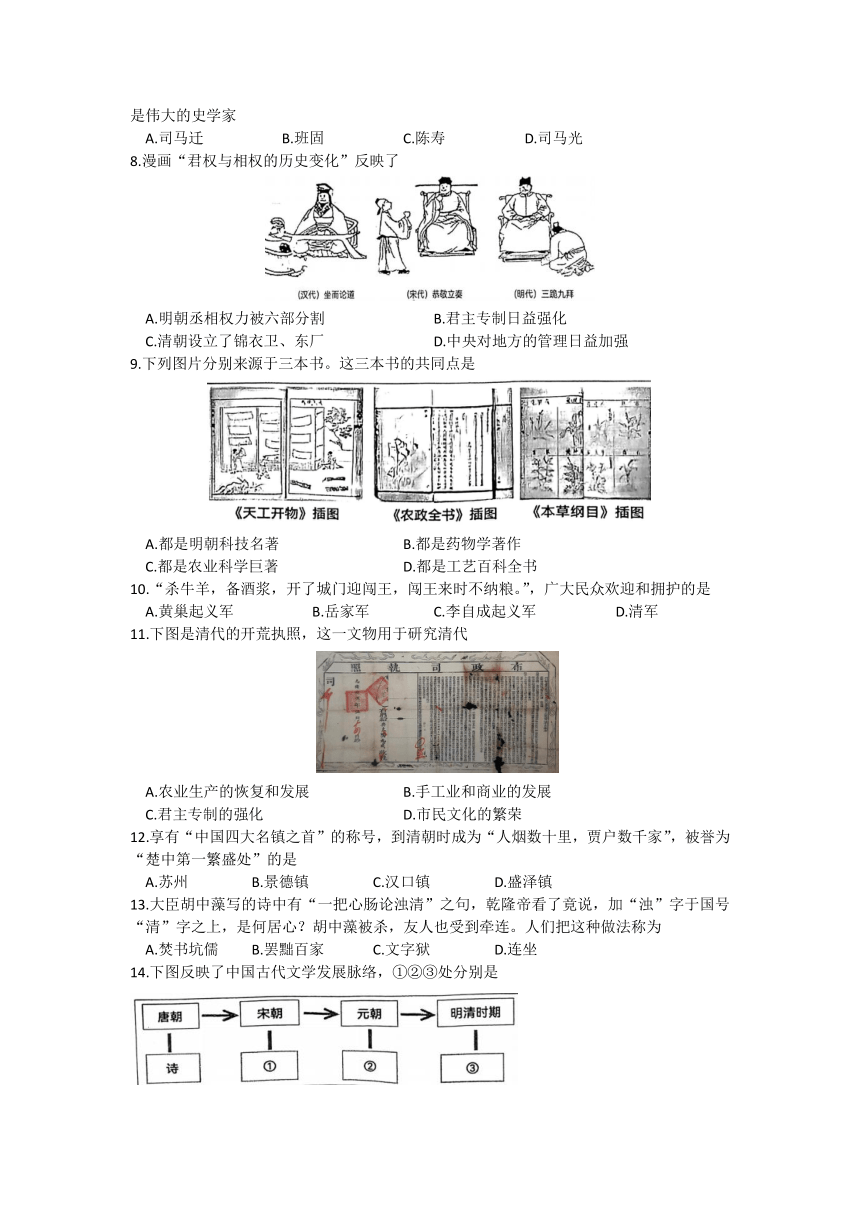 是伟大的史学家
A.司马迁 B.班固 C.陈寿 D.司马光
8.漫画“君权与相权的历史变化”反映了
(汉代) 坐而论道 (宋代) 恭敬立奏 (明代) 三跪九拜
A.明朝丞相权力被六部分割 B.君主专制日益强化
C.清朝设立了锦衣卫、东厂 D.中央对地方的管理日益加强
9.下列图片分别来源于三本书。这三本书的共同点是
《天工开物》插图 《农政全书》插图 《本草纲目》插图
A.都是明朝科技名著 B.都是药物学著作
C.都是农业科学巨著 D.都是工艺百科全书
10.“杀牛羊，备酒浆，开了城门迎闯王，闯王来时不纳粮。”，广大民众欢迎和拥护的是
A.黄巢起义军 B.岳家军 C.李自成起义军 D.清军
11.下图是清代的开荒执照，这一文物用于研究清代
照 執 司 政 布
司
A.农业生产的恢复和发展 B.手工业和商业的发展
C.君主专制的强化 D.市民文化的繁荣
12.享有“中国四大名镇之首”的称号，到清朝时成为“人烟数十里，贾户数千家”，被誉为
“楚中第一繁盛处”的是
A.苏州 B.景德镇 C.汉口镇 D.盛泽镇
13.大臣胡中藻写的诗中有“一把心肠论浊清”之句，乾隆帝看了竟说，加“浊”字于国号
“清”字之上，是何居心？胡中藻被杀，友人也受到牵连。人们把这种做法称为
A.焚书坑儒 B.罢黜百家 C.文字狱 D.连坐
14.下图反映了中国古代文学发展脉络，①②③处分别是
唐朝 宋朝 元朝 明清时期
诗 ① ② ③